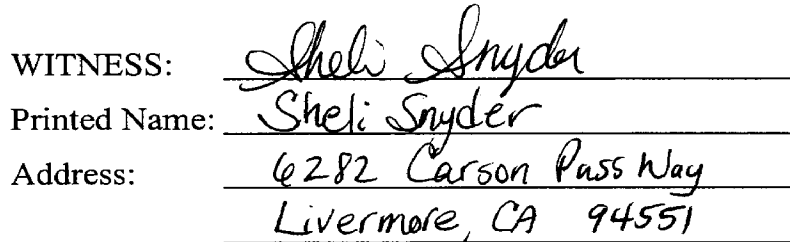 WITNESS: Sheli Snyder
Printed Name: Sheli Snyder
Address: 6282 Carson Pass Way
Livermore, CA 94551